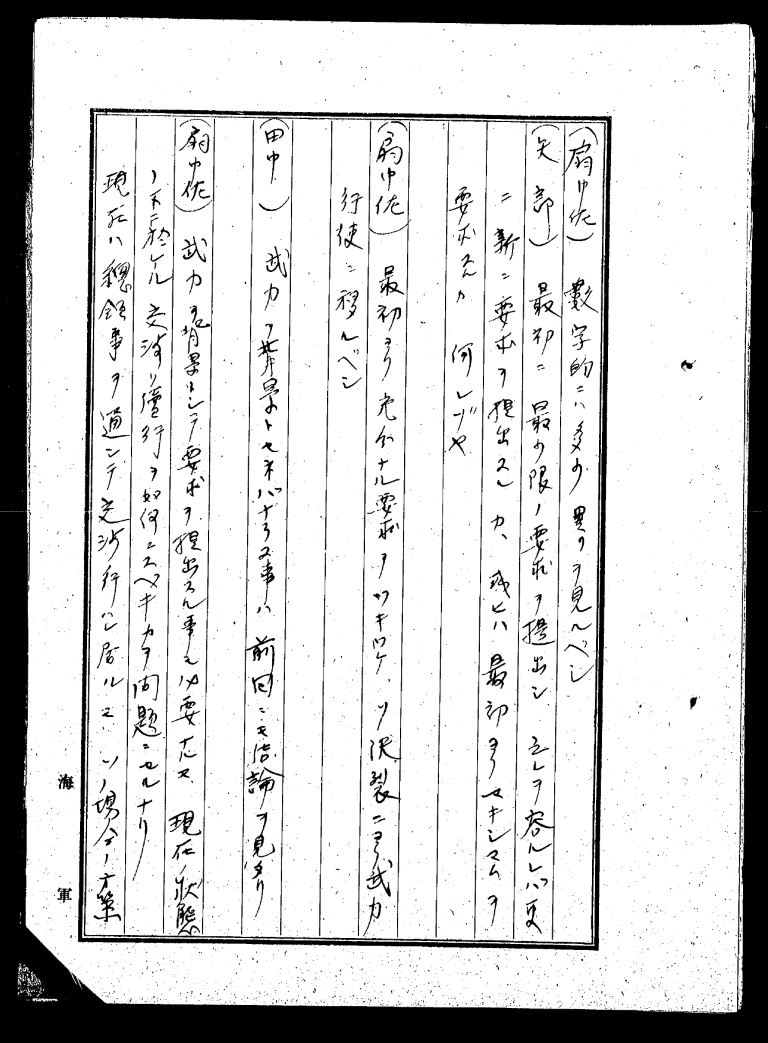 (扇中佐) 數字的ニハ多少異リヲ見ルベシ
(矢部) 最初ニ最少限ノ要求ヲ提出シ之レヲ容ルレバ更
ニ新ニ要求ヲ提出スルカ、或ヒハ最初ヨリマキシマムヲ
要求スルカ 何レゾヤ
(扇中佐) 最初ヨリ充分ナル要求ヲツキツケ、ソノ決裂ニヨリ武力
行使ニ移ルベシ
(田中) 武力ヲ背景トセネバナラヌ事ハ前回ニモ結論ヲ見タリ
(扇中佐) 武力ヲ背景トシテ要求ヲ提出スル事モ必要ナルモ、現在ノ狀態
ノ下ニ於ケル交渉ノ續行ヲ如何ニスベキカヲ問題ニセルナリ
現在ハ總領事ヲ通ジテ交渉行ヒ居ルモ、ソノ場合ノ方策
海軍